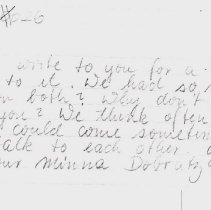 #626
write to you for a
to it. We had so
both? Why don't
you? We think often
could come sometim
alk to each other
our Minna Dobrutz